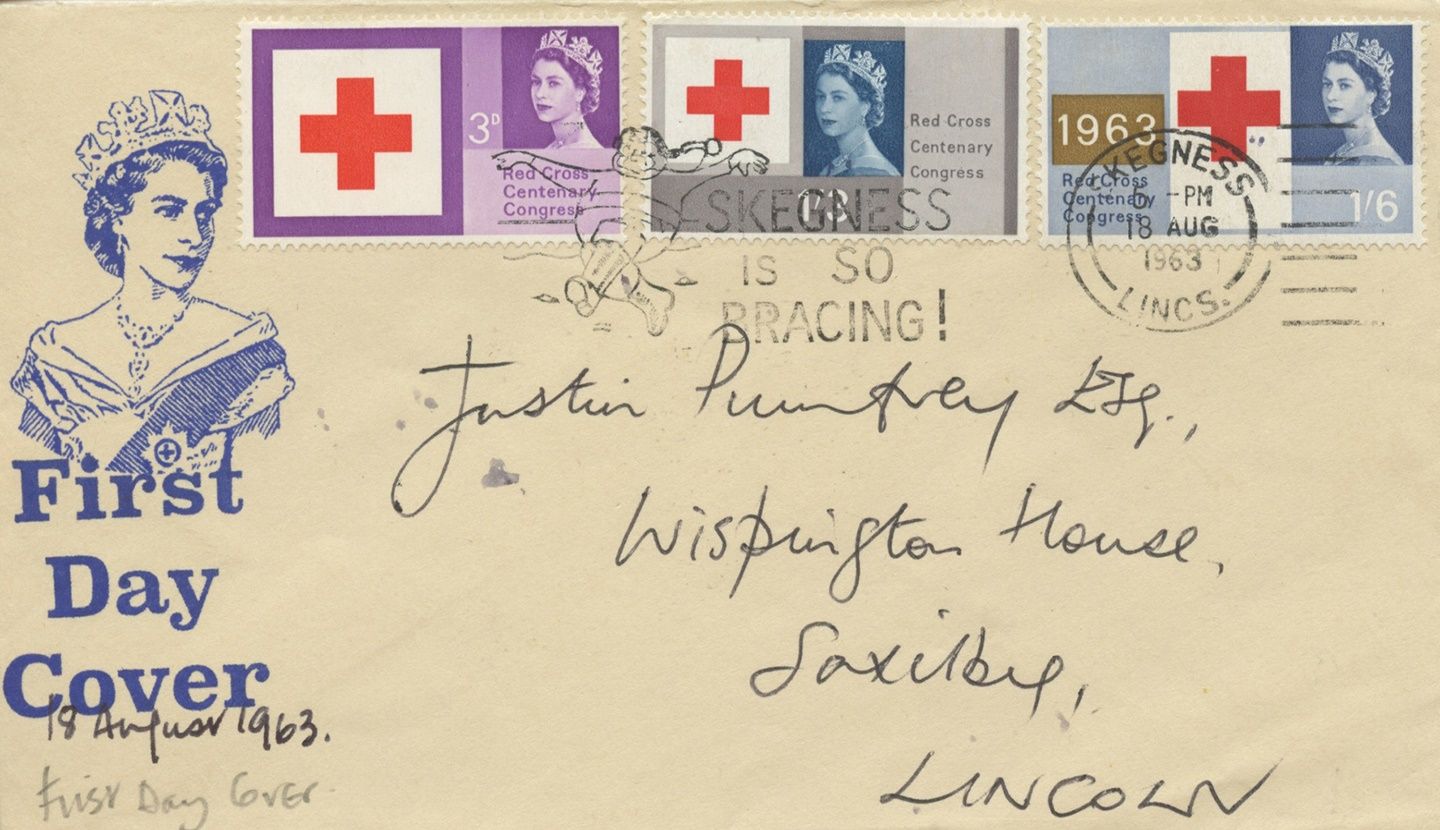 3D
Red Cross
Centenary
Congress
Red Cross
Centenary
Congress
1'3
1963
Red Cross
Centenary
Congress
1'6
SKEGNESS
IS SO
BRACING!
SKEGNESS
5 - PM
18 AUG
1963
LINCS.
Justin Pumfrey Esq.,
Wispington House,
Saxilby,
LINCOLN
First
Day
Cover
18 August 1963.
First Day Cover